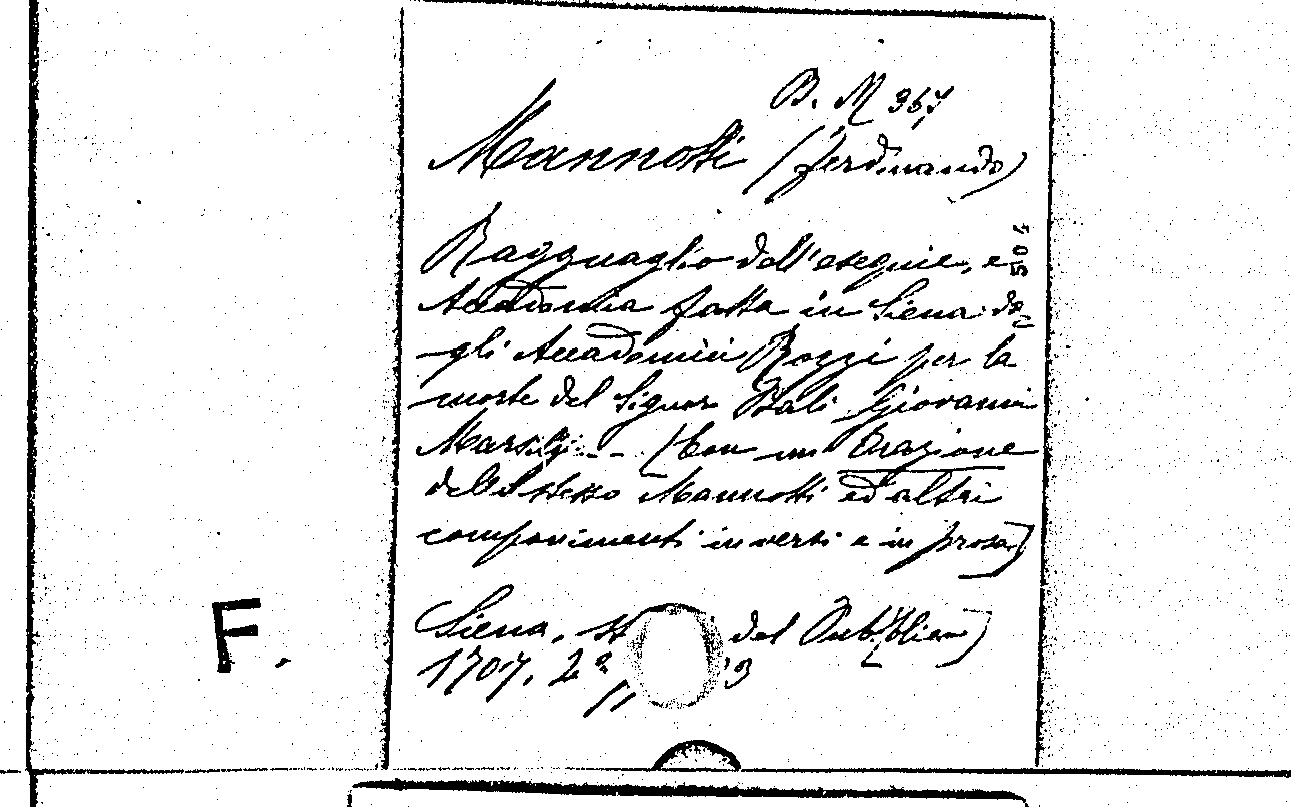 B. M 367
Mannotti (Ferdinando)
504
Ragguaglio dell'esequie, e
Accademia fatta in Siena da-
gli Accademici Rozzi per la
morte del Signor Balì Giovanni
Marsilj... (Con un Orazione
dello stesso Mannotti ed altri
componimenti in versi e in prosa)
Siena, st del Pubblico)
1707. 2ª 3
F.